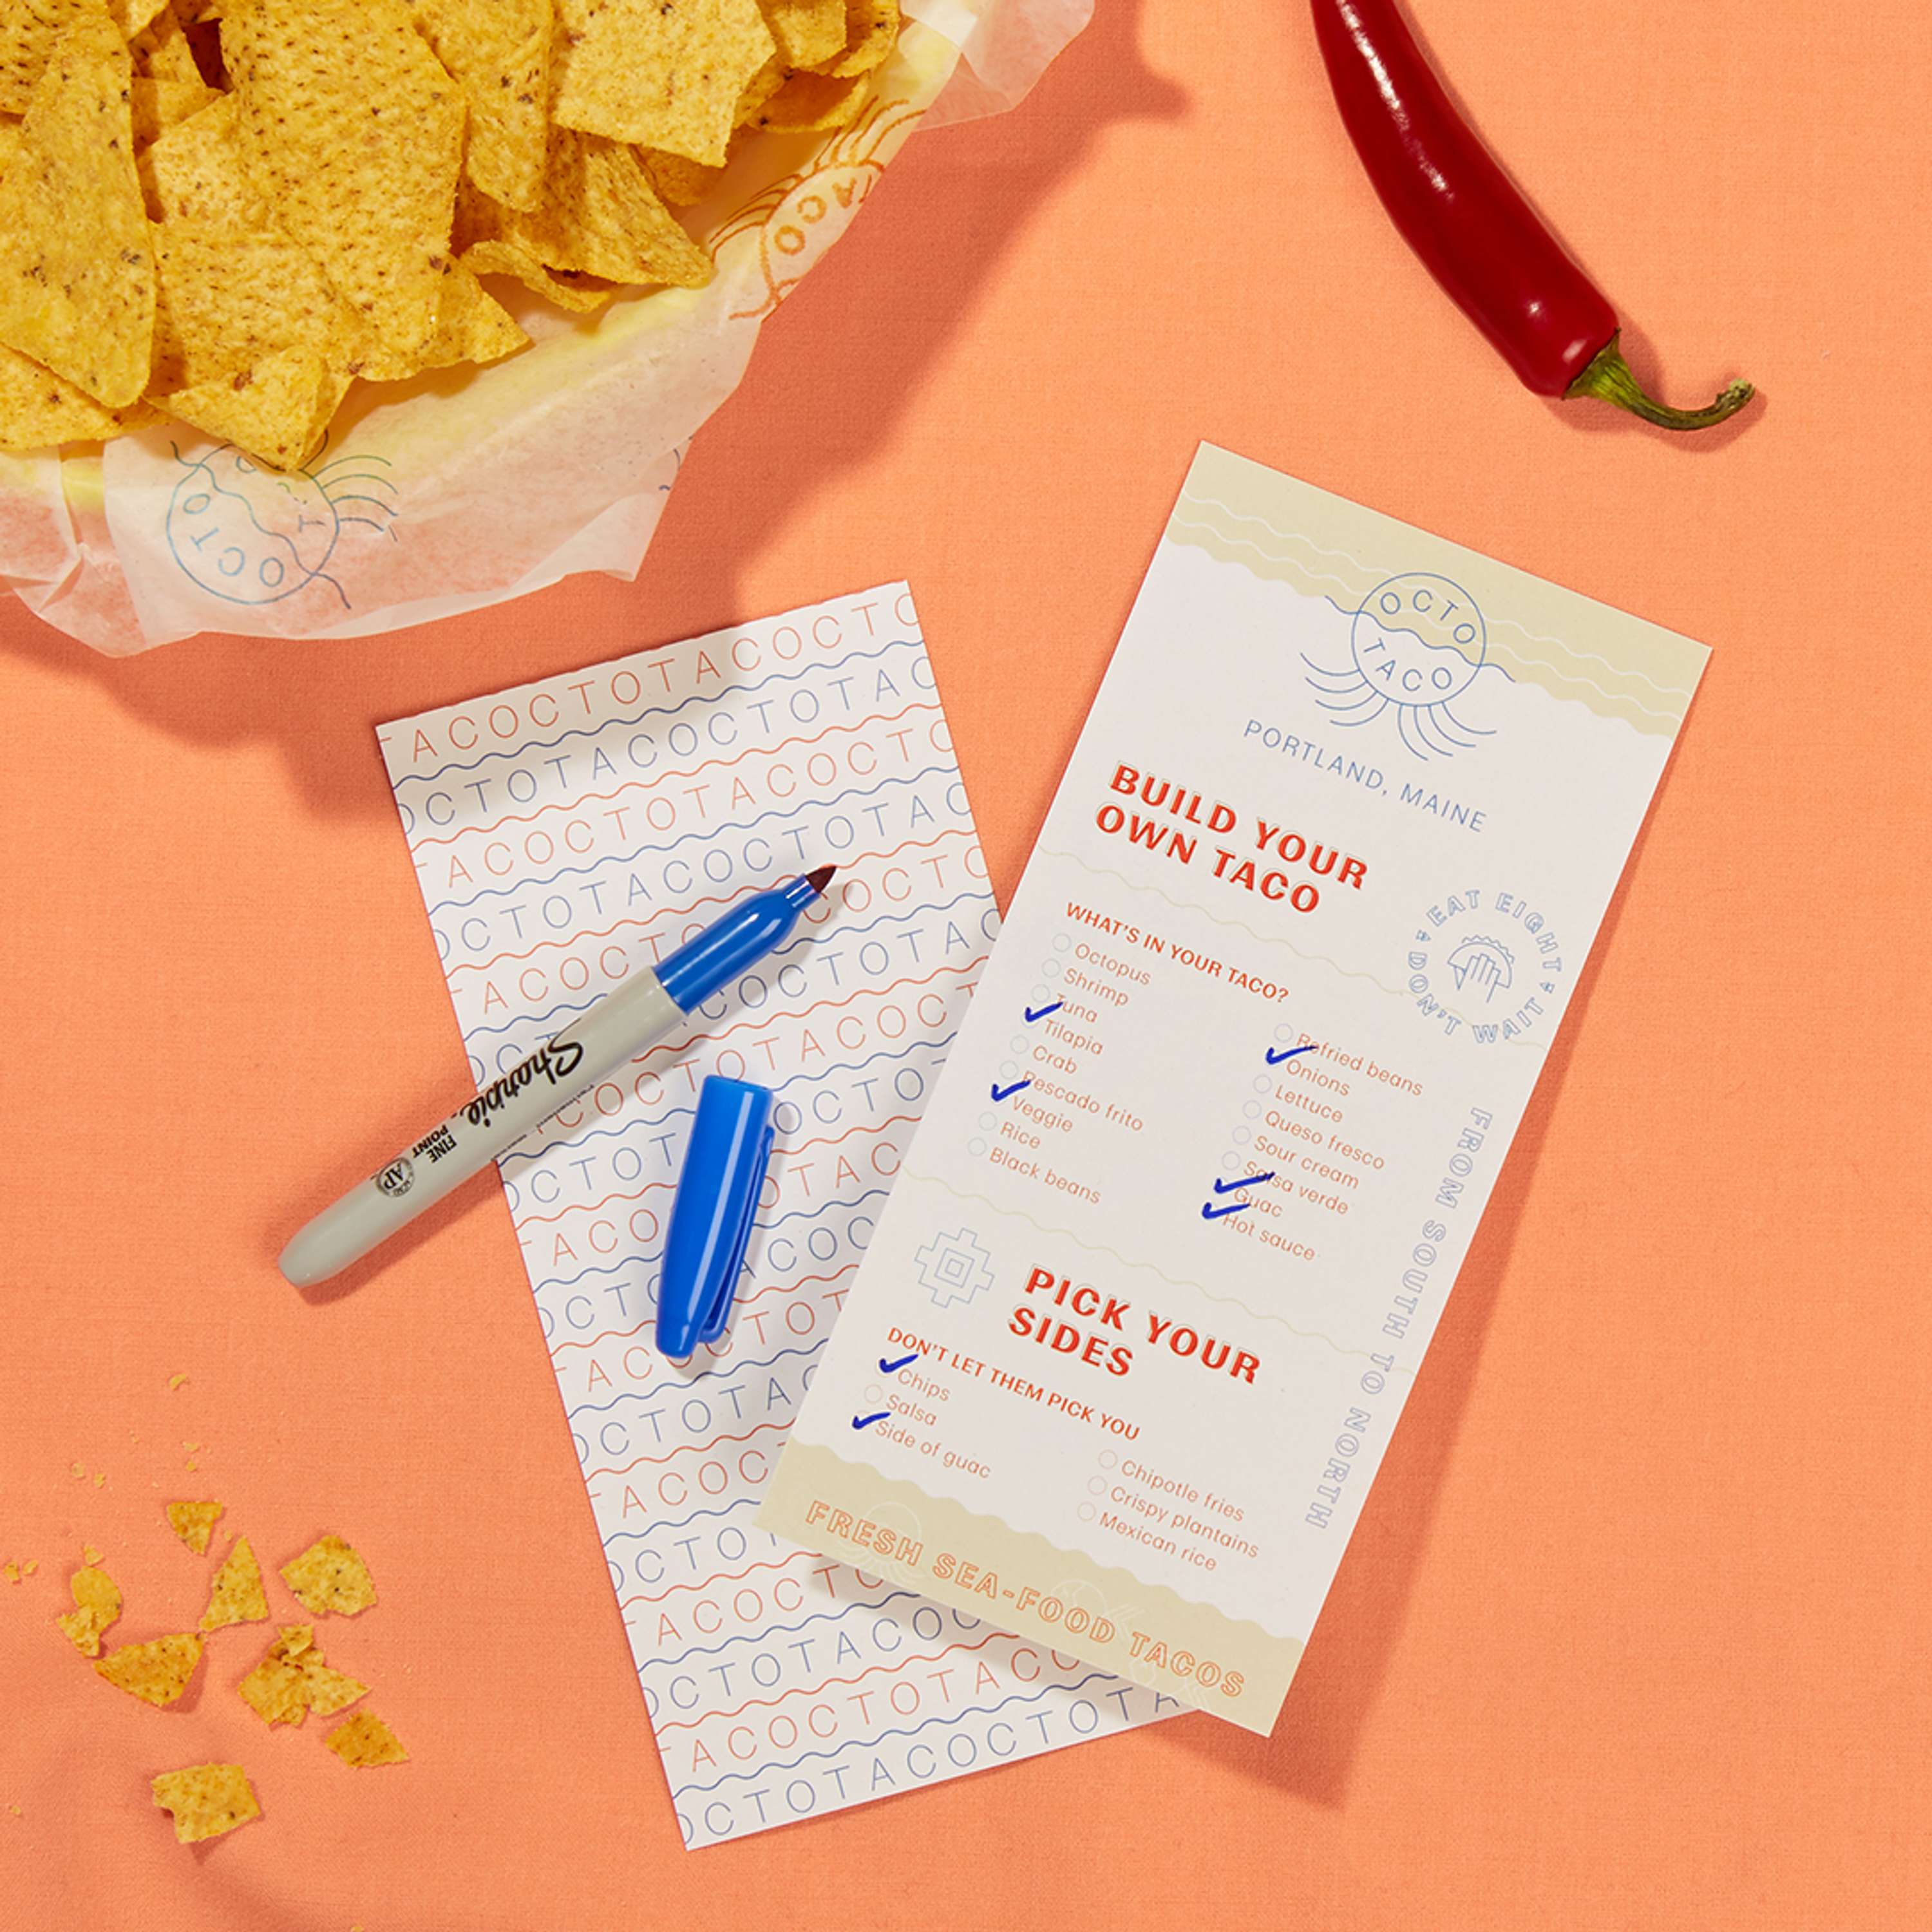 TACO
OCTO
T
OCTO
TACO
PORTLAND, MAINE
BUILD YOUR
OWN TACO
EAT EIGHT
DON'T WAIT
WHAT'S IN YOUR TACO?
Octopus
Shrimp
Tuna
Tilapia
Crab
Pescado frito
Veggie
Rice
Black beans
Refried beans
Onions
Lettuce
Queso fresco
Sour cream
Salsa verde
Guac
Hot sauce
FROM SOUTH TO NORTH
PICK YOUR
SIDES
DON'T LET THEM PICK YOU
Chips
Salsa
Side of guac
Chipotle fries
Crispy plantains
Mexican rice
FRESH SEA-FOOD TACOS
TACOCTOTACOCTO
OCTOTACOCTOTAC
TACOCTOTACOCTO
OCTOTACOCTOTAC
TACOCTOTACOCTO
OCTOTACOCTOTAC
Sharpie
FINE
POINT
AP
TACOCTOTACO
OCTOTACOCTOTA